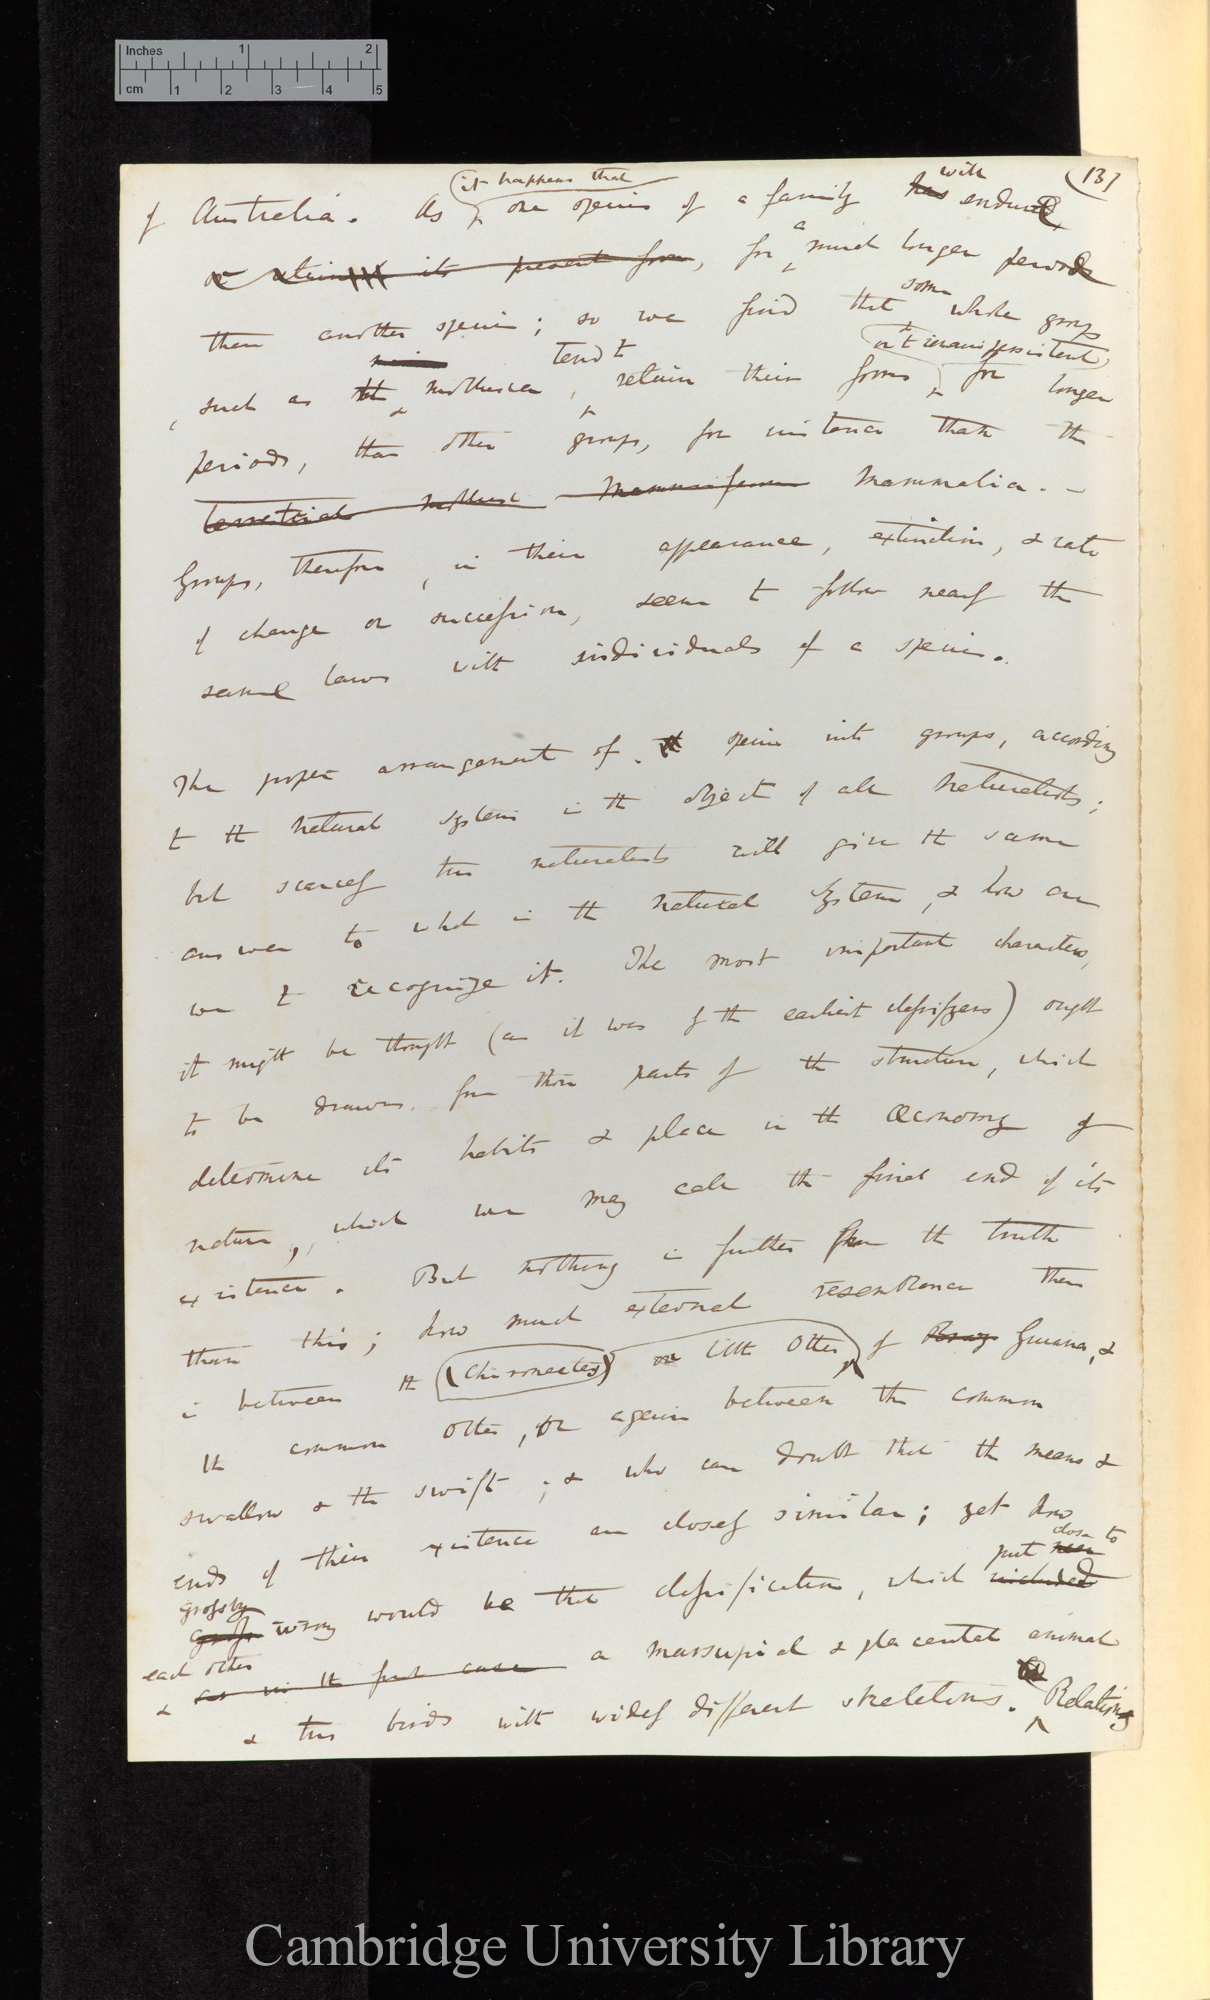 Inches 1 2
cm 1 2 3 4 5
(131
it happens that
with
of Australia. As one species of a family has endured,
or retain its present form, for a much longer periods
than another species; so we find that some whole groups
tend to
or to remain persistent,
such as the mollusca, retain their forms, for longer
periods, than other groups, for instance than the
terrestrial mollusc Mammiferous Mammalia. —
Groups, therefore, in their appearance, extinction, & rate
of change or succession, seem to follow nearly the
same laws with individuals of a species.
The proper arrangement of species into groups, according
to the natural system is the object of all naturalists;
but scarcely two naturalists will give the same
answer to what is the natural system, & how are
we to recognize it. The most important characters,
it might be thought (as it was by the earliest classifyers) ought
to be drawn from those parts of the structure, which
determine its habits & place in the Œconomy of
nature, which we may call the final end of its
existence. But nothing is further from the truth
than this; how much external resemblance there
is between the (Chironectes) or little Otter of Guiana, &
the common otter, or again between the common
swallow & the swift; & who can doubt that the means &
ends of their existence are closely similar; yet how
close to
grossly wrong would be that classification, which put near included
each other
& as in the first case a marsupial & placental animal
& two birds with widely different skeletons. Relations
Cambridge University Library